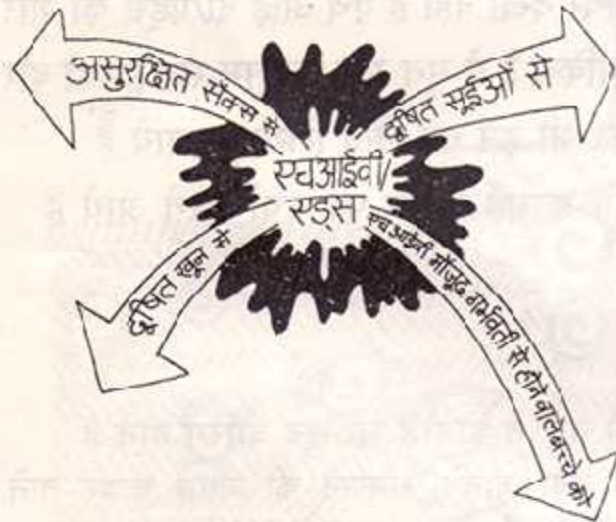 असुरक्षित सॅक्स से
दूषित सूईओं से
एचआईवी/
एड्स
दूषित खून से
एच आईवी मौजूद गर्भवती से होने वाले बच्चे को